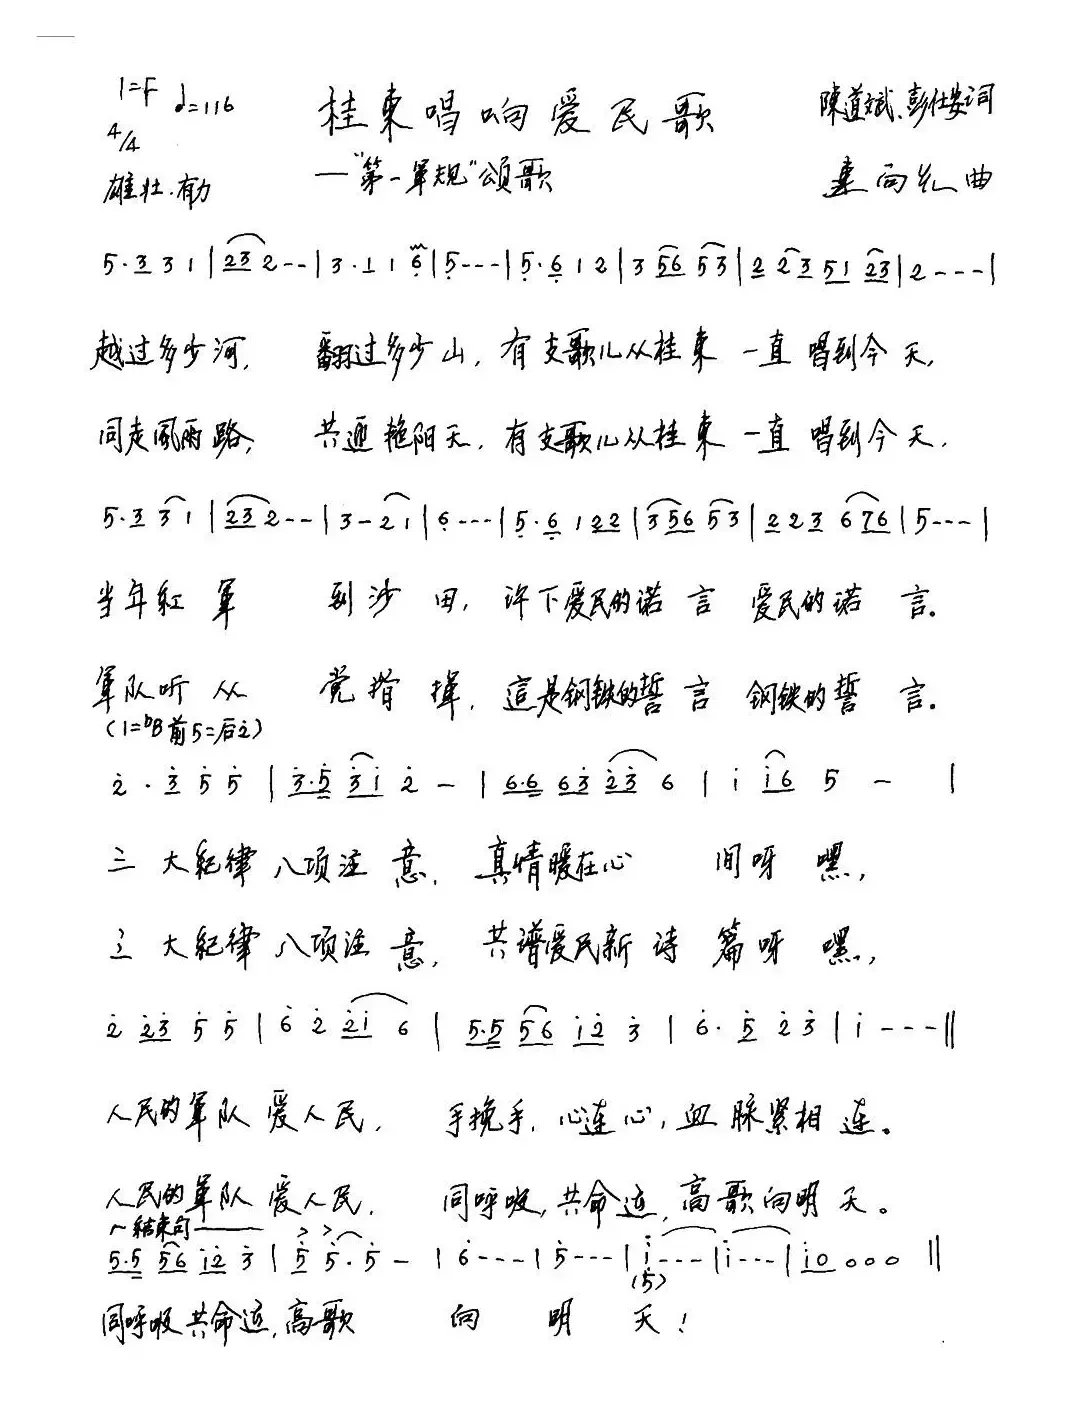 1=F ♩=116 桂東唱响爱民歌 陳道斌、彭仕安词
4/4
雄壮.有力 —"第一軍规"頌歌 曲
5·3 3 1 | 23 2 - - | 3·1 1 6 | 5 - - - | 5·6 1 2 | 3 56 53 | 2 23 51 23 | 2 - - - |
越过多少河, 翻过多少山, 有支歌儿从桂東 一直唱到今天,
同走風雨路, 共迎艳阳天, 有支歌儿从桂東 一直唱到今天,
5·3 3 1 | 23 2 - - | 3 - 2 1 | 6 - - - | 5·6 1 22 | 3 56 53 | 2 23 6 76 | 5 - - - |
当年紅軍 到沙田, 许下爱民的诺言 爱民的诺言。
軍队听从 党指揮, 這是钢铁的誓言 钢铁的誓言。
(1=bB 前5=后2)
2·3 5 5 | 3·5 31 2 - | 6·6 63 23 6 | 1 16 5 - |
三大紀律八项注意, 真情暖在心 间呀嘿,
三大紀律八项注意, 共谱爱民新诗篇呀嘿,
2 23 5 5 | 6 2 21 6 | 5·5 56 12 3 | 6·5 2 3 | 1 - - - ‖
人民的軍队爱人民, 手挽手,心连心,血脉紧相连。
人民的軍队爱人民, 同呼吸,共命运,高歌向明天。
结束句
5·5 56 12 3 | 5 5·5 - | 6 - - - | 5 - - - | 1 - - - | 1 - - - | 10 0 0 0 ‖
(5)
同呼吸共命运,高歌 向明天!